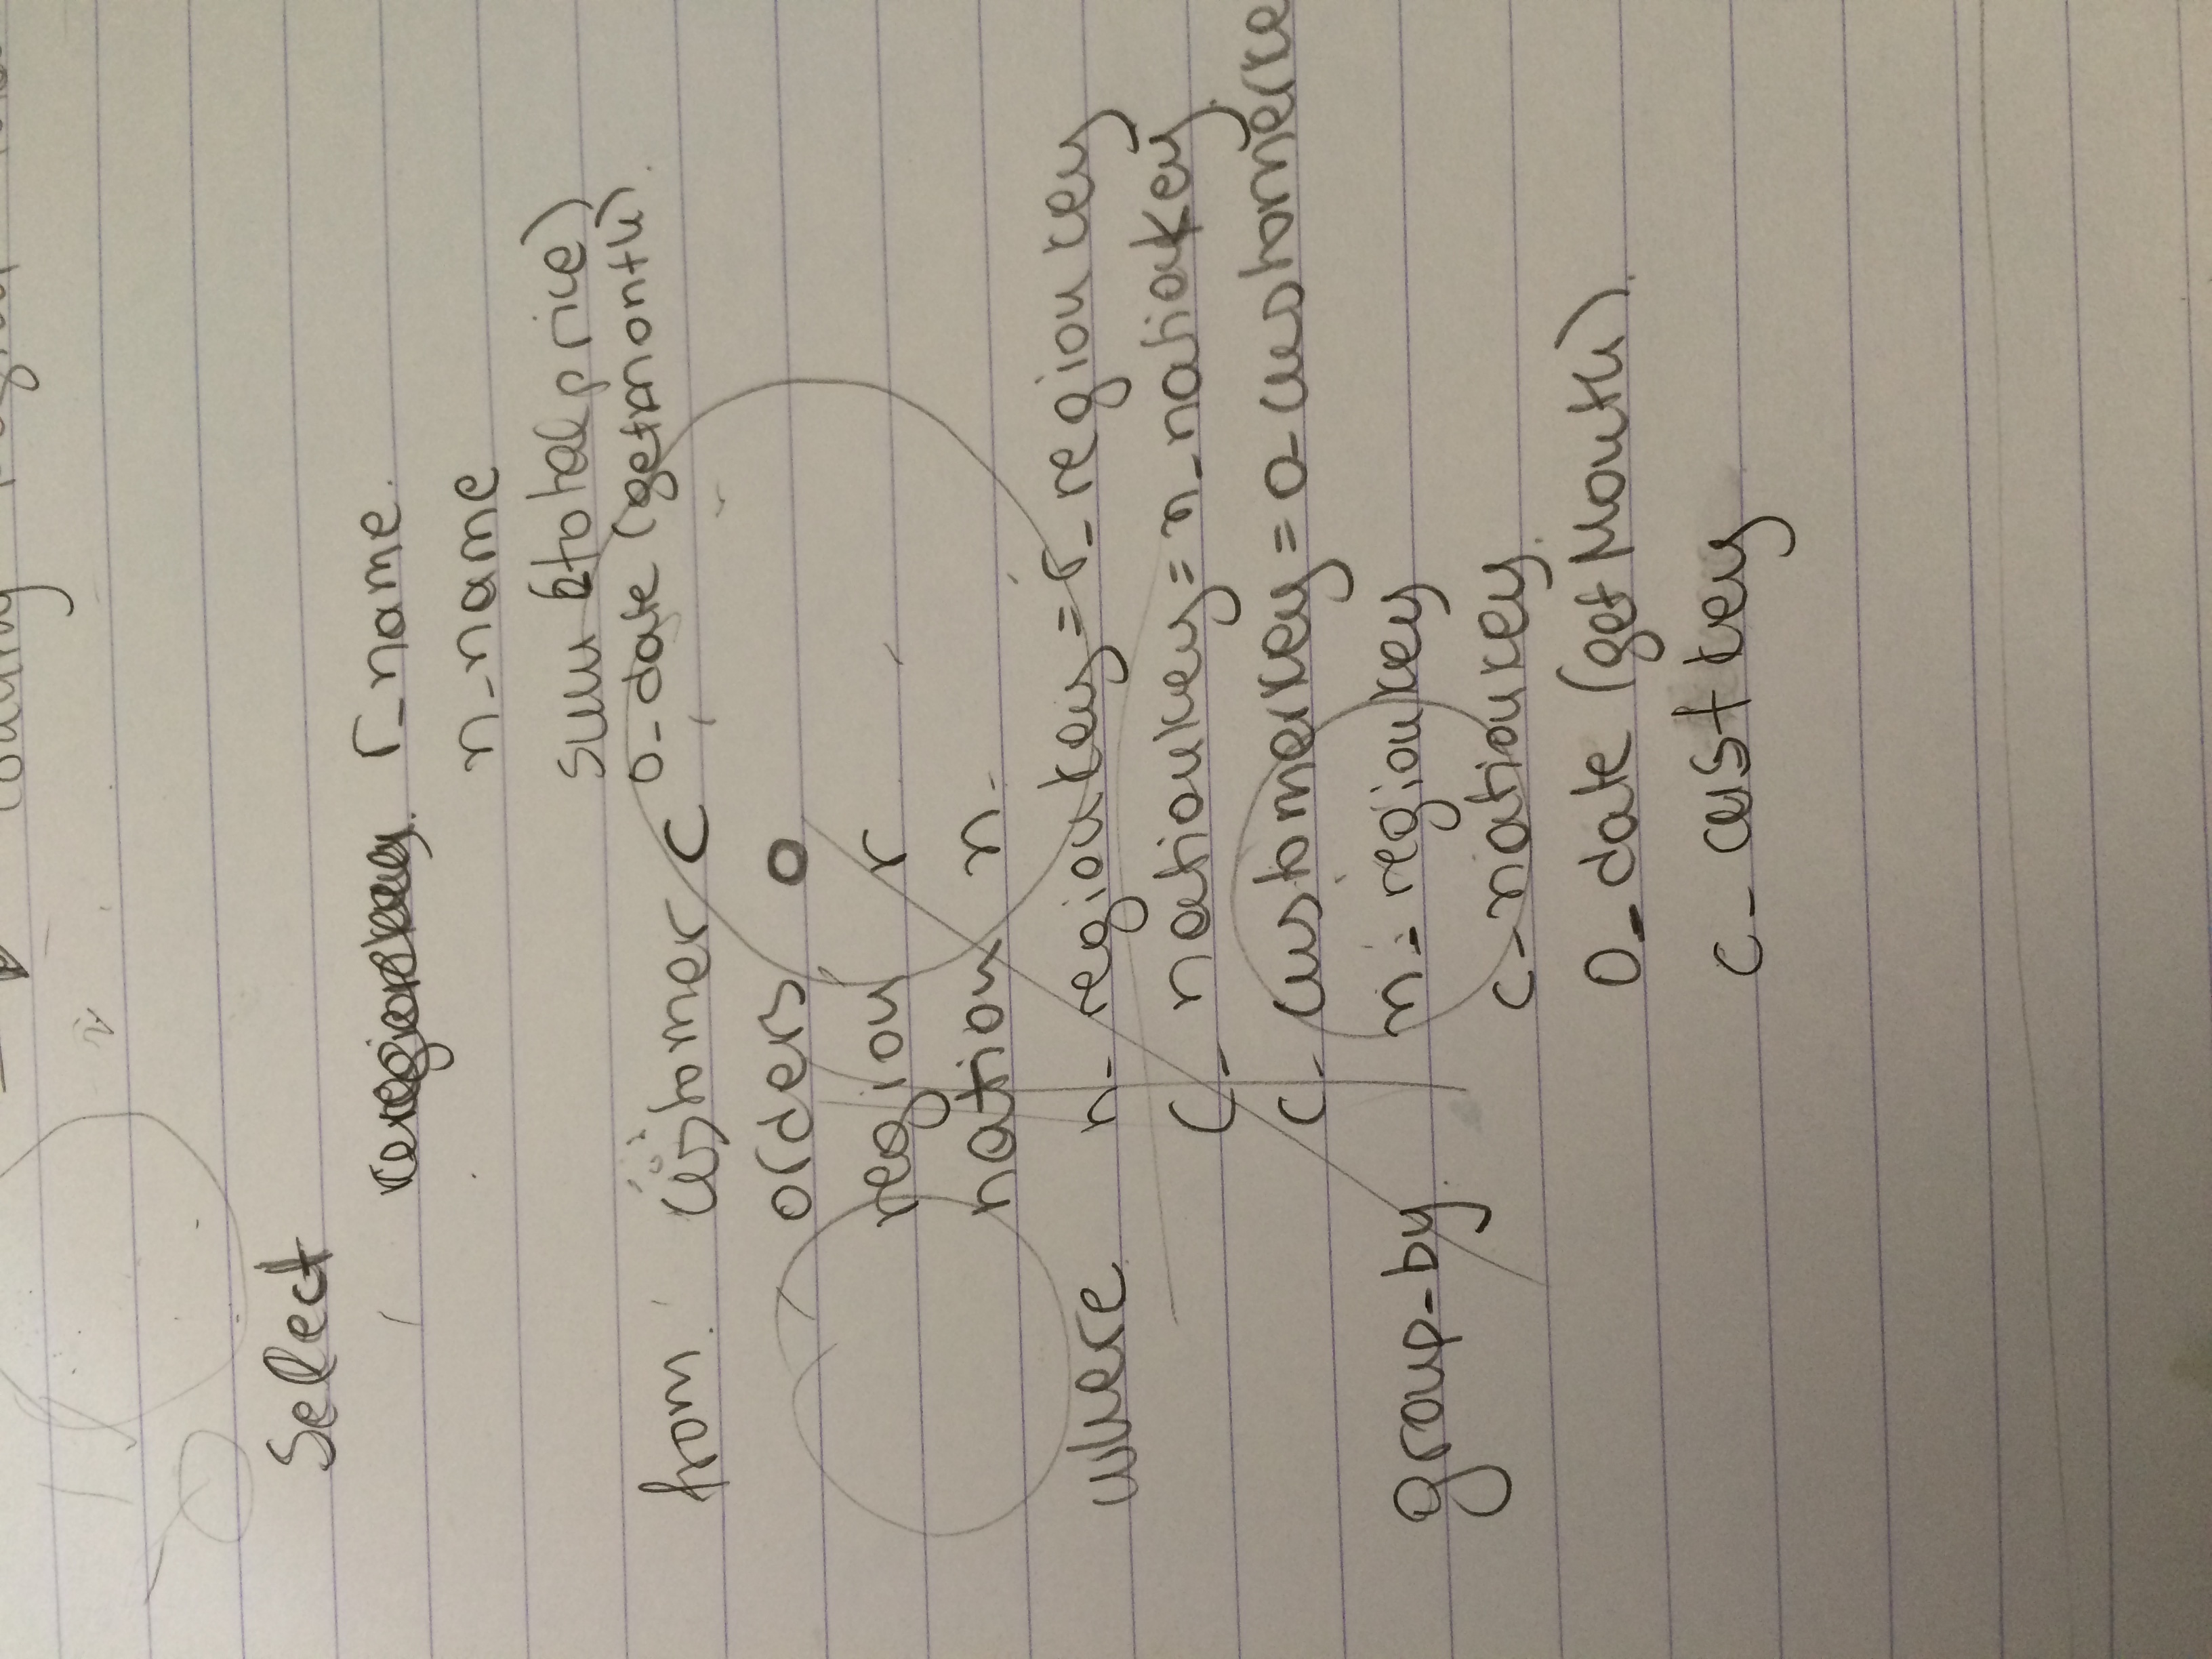 2
Select
r_name.
n_name
sum (totalprice)
o_date (getmonth).
from. customer c
orders o
region r
nation n.
where n_regionkey = r_regionkey
c_nationkey = n_nationkey
c_customerkey = o_customerke
group-by. n_regionkey
c_nationkey.
o_date (getMonth).
c_custkey